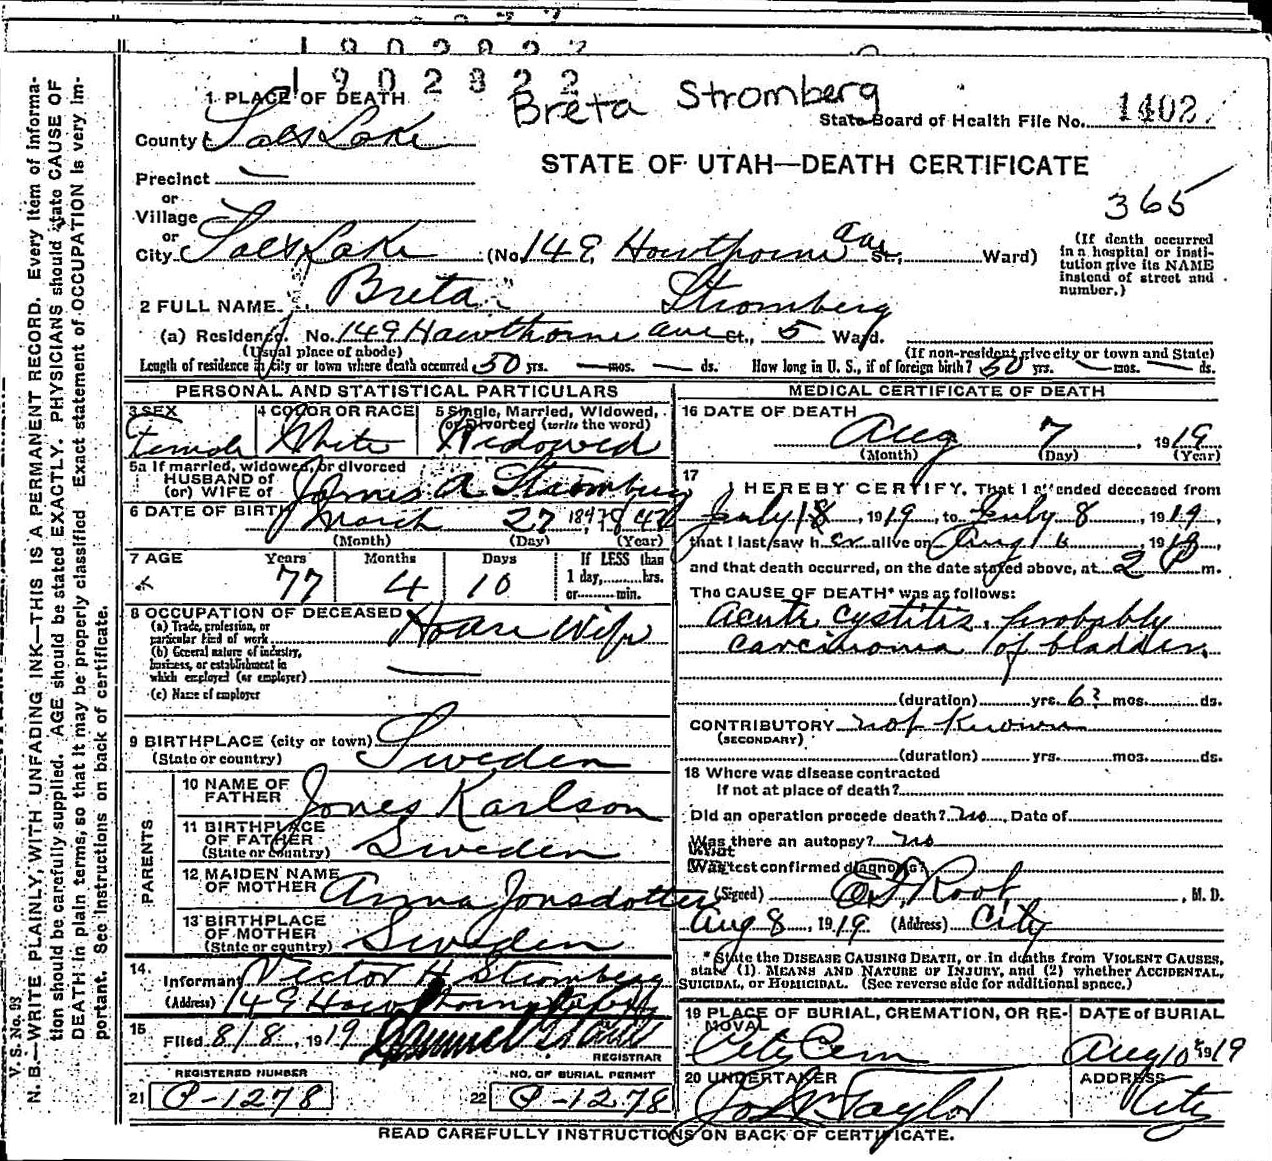 1902822
1902822
Breta Stromberg
1 PLACE OF DEATH
State Board of Health File No. 1402
County Salt Lake
STATE OF UTAH—DEATH CERTIFICATE
Precinct —
or
Village
365
or
City Salt Lake (No. 149, Hawthorne ave St., Ward)
(If death occurred in a hospital or institution give its NAME instead of street and number.)
2 FULL NAME Breta Stromberg
(a) Residence. No. 149 Hawthorne ave St., 5 Ward.
(Usual place of abode) (If non-resident give city or town and State)
Length of residence in city or town where death occurred 50 yrs. — mos. — ds. How long in U. S., if of foreign birth? 50 yrs. — mos. — ds.
PERSONAL AND STATISTICAL PARTICULARS
3 SEX Female
4 COLOR OR RACE White
5 Single, Married, Widowed, or Divorced (write the word) Widowed
5a If married, widowed, or divorced
HUSBAND of
(or) WIFE of James A Stromberg
6 DATE OF BIRTH March 27
(Month) (Day) (Year)
7 AGE Years 77 Months 4 Days 10
If LESS than
1 day,.....hrs.
or.....min.
8 OCCUPATION OF DECEASED House Wife
(a) Trade, profession, or
particular kind of work
(b) General nature of industry,
business, or establishment in
which employed (or employer) —
(c) Name of employer
9 BIRTHPLACE (city or town)
(State or country) Sweden
PARENTS
10 NAME OF FATHER Jones Karlson
11 BIRTHPLACE OF FATHER
(State or country) Sweden
12 MAIDEN NAME OF MOTHER Anna Jonsdotter
13 BIRTHPLACE OF MOTHER
(State or country) Sweden
14. Informant Victor H Stromberg
(Address) 149 Hawthorne
15 Filed 8/8, 1919
REGISTRAR
REGISTERED NUMBER
21 P-1278
NO. OF BURIAL PERMIT
22 P-1278
MEDICAL CERTIFICATE OF DEATH
16 DATE OF DEATH
Aug 7, 1919
(Month) (Day) (Year)
17
I HEREBY CERTIFY, That I attended deceased from
July 18, 1919, to July 8, 1919,
that I last saw her alive on Aug 6, 1918,
and that death occurred, on the date stated above, at 2 P m.
The CAUSE OF DEATH* was as follows:
acute cystitis, probably
carcinoma of bladder.
(duration) yrs. 6? mos. ds.
CONTRIBUTORY not known
(SECONDARY)
(duration) yrs. mos. ds.
18 Where was disease contracted
If not at place of death?
Did an operation precede death? no Date of
Was there an autopsy? no
What test confirmed diagnosis?
(Signed) O.S. Root, M. D.
Aug 8, 1919 (Address) City
* State the DISEASE CAUSING DEATH, or in deaths from VIOLENT CAUSES,
state (1). MEANS AND NATURE OF INJURY, and (2) whether ACCIDENTAL,
SUICIDAL, or HOMICIDAL. (See reverse side for additional space.)
19 PLACE OF BURIAL, CREMATION, OR REMOVAL City Cem
DATE of BURIAL Aug 10 1919
20 UNDERTAKER Jos Wm Taylor
ADDRESS City
READ CAREFULLY INSTRUCTIONS ON BACK OF CERTIFICATE.
V. S. No. 93
N. B.—WRITE PLAINLY, WITH UNFADING INK—THIS IS A PERMANENT RECORD. Every item of informa-
tion should be carefully supplied. AGE should be stated EXACTLY. PHYSICIANS should state CAUSE OF
DEATH in plain terms, so that it may be properly classified. Exact statement of OCCUPATION is very im-
portant. See instructions on back of certificate.